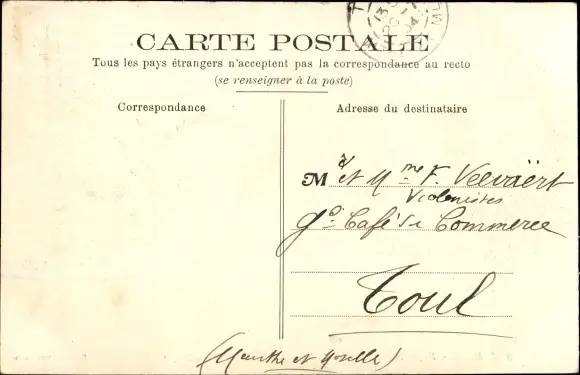 CARTE POSTALE
Tous les pays étrangers n'acceptent pas la correspondance au recto
(se renseigner à la poste)
Correspondance
Adresse du destinataire
M et Mme F. Veevaërt
Violonistes
Gd Café du Commerce
Toul
(Meurthe et Moselle)